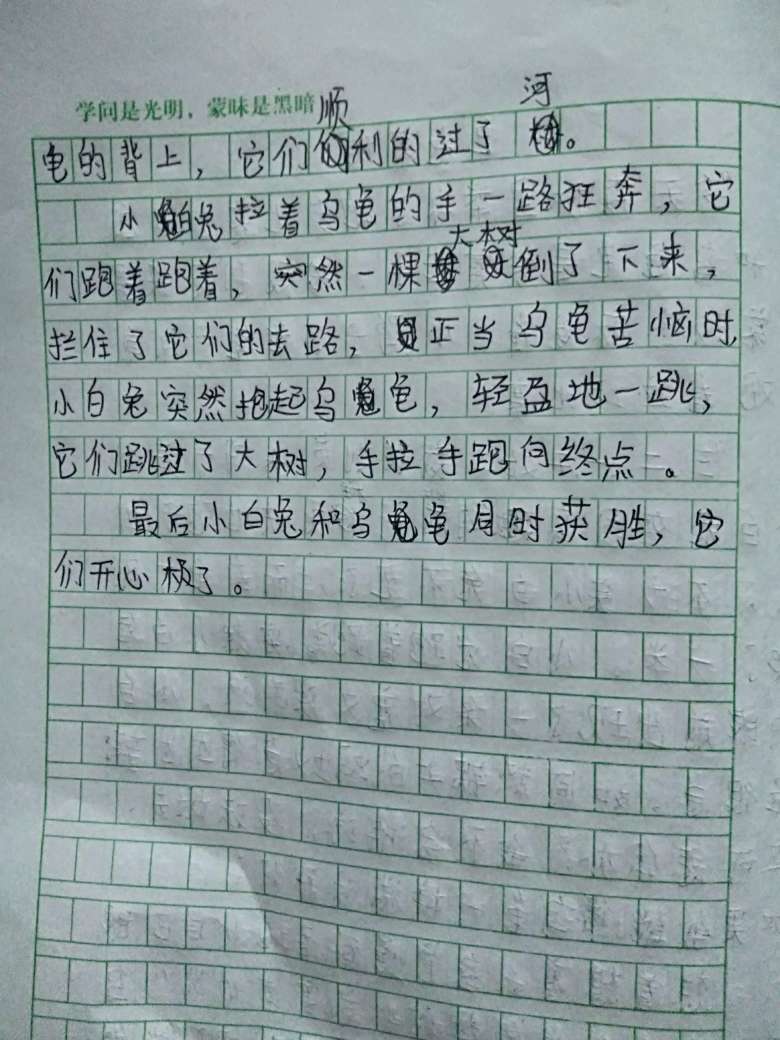 学问是光明，蒙昧是黑暗
顺 河
龟的背上，它们利的过了。
小白兔拉着乌龟的手一路狂奔，它
大树
们跑着跑着，突然一棵倒了下来，
拦住了它们的去路，正当乌龟苦恼时，
小白兔突然抱起乌龟，轻盈地一跳，
它们跳过了大树，手拉手跑向终点。
最后小白兔和乌龟同时获胜，它
们开心极了。